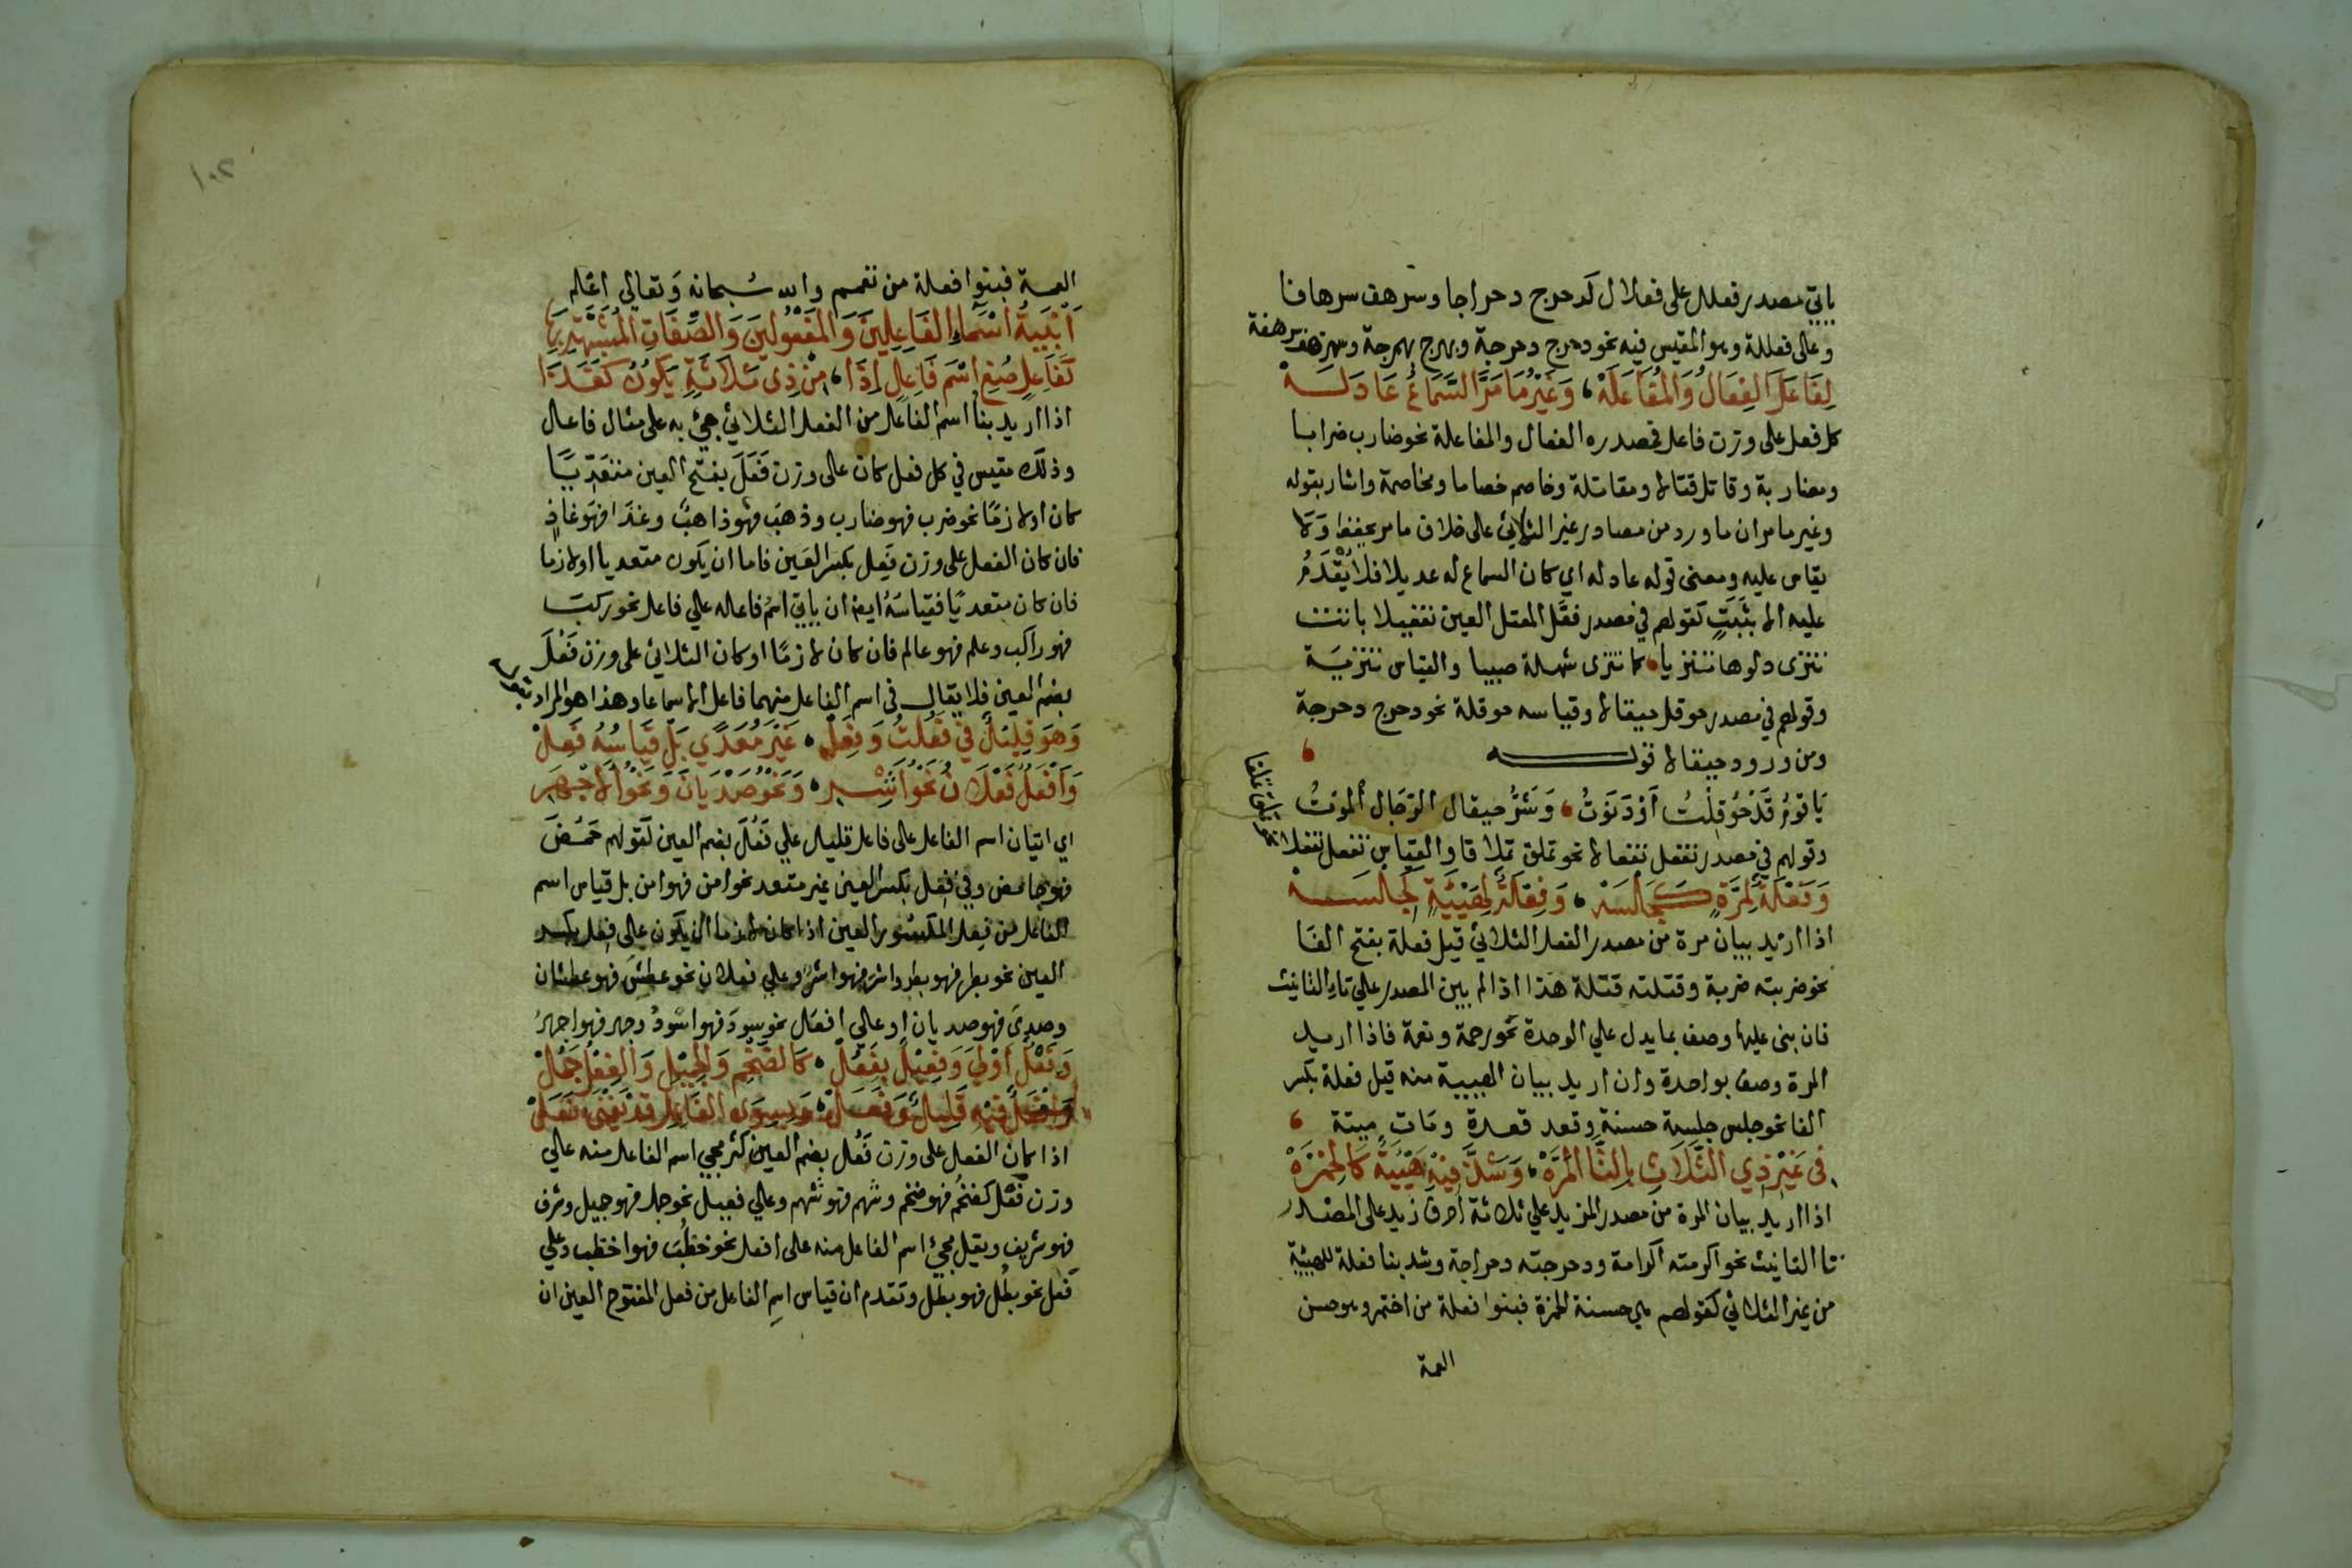 ياتي مصدر فعلل على فعلال كدحرج دحراجا وسرهف سرهافا
وعلى فعللة وهو المقيس فيه نحو دحرج دحرجة وبهرج بهرجة وسرهف سرهفة
لِفَاعَلَ الفِعَالُ وَالمُفَاعَلَهْ، وَغَيْرُ مَا مَرَّ السَّمَاعُ عَادَلَهْ
كل فعل على وزن فاعل فمصدره الفعال والمفاعلة نحو ضارب ضرابا
ومضاربة وقاتل قتالا ومقاتلة وخاصم خصاما ومخاصمة واشار بقوله
وغير ما مر ان ما ورد من مصادر غير الثلاثي على خلاف ما مر يحفظ وَلا
يقاس عليه ومعنى قوله عادله اي كان السماع له عديلا فلا يُقْدَمُ
عليه الا بثَبَتٍ كقولهم في مصدر فعَّل المعتل العين تفعيلا باتت
تنزى دلوها تنزيا، كما تنزى شهلة صبيا والقياس تنزيَة
وقولهم في مصدر حوقل حيقالا وقياسه حوقلة نحو دحرج دحرجة
ومن ورود حيقالا قوله
يَا قَوْمُ قَدْ حَوْقَلْتُ أَوْ دَنَوْتُ، وَشَرُّ حيقال الرّجَال الموْتُ
وقولهم في مصدر تفعل تفعالا نحو تملق تملاقا والقياس تفعل تفعلا
نحو تملق تملقا
وَفَعْلَةٌ لِمَرَّةٍ كَجَلْسَهْ، وَفِعْلَةٌ لِهَيْئَةٍ كَجِلْسَهْ
اذا اريد بيان مرة من مصدر الفعل الثلاثي قيل فعلة بفتح الفَا
نحو ضربته ضربة وقتلته قتلة هذا اذا لم يبن المصدر علي تاءِ التانيث
فان بنى عليها وصف بما يدل علي الوحدة نحو رحمة ونعمة فاذا اريد
المرة وصف بواحدة وان اريد بيان الهيية منه قيل فعلة بكسر
الفا نحو جلس جلسة حسنة وقعد قعدة ومَات ميتة
فى غَيْرِ ذِي الثَّلَاثِ بِالتَّا المَرَّهْ، وَشَذَّ فِيْهِ هَيْئَةٌ كَالخِمْرَهْ
اذا اريد بيان المرة من مصدر المزيد علي ثلاثة أحرف زيد على المصْدر
تا التانيث نحو اكرمته اكرامة ودحرجته دحراجة وشذ بنا فعلة للهيئية
من غير الثلاثي كقولهم هي حسنة الخمرة فبنوا فعلة من اختمر وهو حسن
العمة
١٠٢
العمة فبنوا فعلة من تعمم والله سُبحانه وَتعالى اعَلم
أَبْنِيَةُ أسْمَاءِ الفَاعِلِينَ وَالمَفْعُولينَ وَالصِّفَاتِ المُشَبَّهَةِ بِهَا
كَفَاعِلٍ صُغِ اسْمَ فَاعِلٍ إذَا، مِنْ ذِى ثَلَاثَةٍ يَكُونُ كَغَذَا
اذا اريد بنا اسم الفاعل من الفعل الثلاثي جيء به على مثال فاعل
وذلك مقيس في كل فعل كان على وزن فَعَلَ بفتح العين متعَدّيًا
كان او لازمًا نحو ضرب فهو ضارب وذهَب فهو ذاهبٌ وغذَا فهَو غاذٍ
فان كان الفعل على وزن فَعِل بكسر العَين فاما ان يكون متعديا او لازما
فان كان متعديًا فقياسَهُ ايضا ان ياتي اسْمُ فاعله علي فاعل نحو ركبَ
فهو راكب وعلم فهو عالم فان كان لازمًا او كان الثلاثي على وزن فَعُلَ
بضم العين فلا يقال في اسم الفاعل منهما فاعل الا سماعا وهذا هو المراد بقوله
وَهوَ قَلِيلٌ في فَعُلْتُ وَفَعِلْ، غَيْرَ مُعَدًّي بَلْ قِيَاسُهُ فَعِلْ
وَأَفْعَلٌ فَعْلَانُ نَحْوُ أشِرِ، وَنَحْوُ صَدْيَانَ وَنَحْوُ الأجْهَرِ
اي اتيان اسم الفاعل على فاعل قليل علي فَعُلَ بضم العين كقولهم حَمُضَ
فهو حامض وفي فَعِل بكسر العين غير متعد نحو امن فهو امن بل قياس اسم
الفاعل من فعِل المكسُور العين اذا كان لازما ان يكون على فعِل بكسر
العين نحو بطر فهو بطر واشر فهو اشرٌ وعلي فعلان نحو عطِشَ فهو عطشان
وصدِيَ فهو صديان او علي افعَل نحو سودَ فهو اسْودُ وجهر فهو اجهرُ
وَفَعْلٌ أوْلَى وَفَعِيلٌ بِفَعُلْ، كَالضَّخْمِ وَالجَمِيلِ وَالفِعْلُ جَمُلْ
وَأفْعَلٌ فِيْهِ قَلِيلٌ وَفَعَلْ، وَبِسِوَى الفَاعِلِ قَدْ يَغْنَى فَعَلْ
اذا كان الفعل على وزن فَعُل بضم العين كثر مجي اسم الفاعل منه علي
وزن فَعْل كضخُم فهو ضخم وشهم فهو شهم وعلي فعيل نحو جمل فهو جميل وشرف
فهو شريف ويقل مجيء اسم الفاعل منه على افعل نحو خطُبَ فهو اخطب وعلي
فَعَل نحو بطُل فهو بطَل وتقدم ان قياس اسم الفاعل من فعل المفتوح العين ان